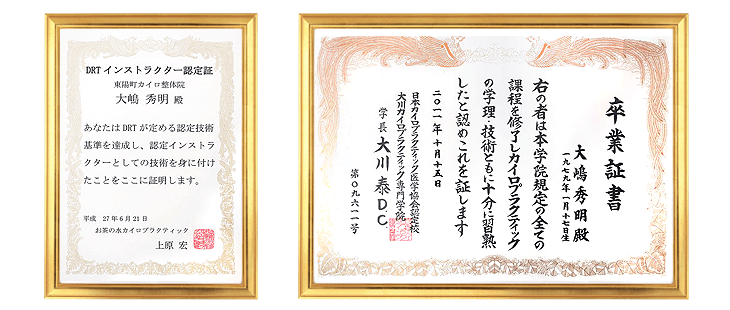 DRT インストラクター認定証
東陽町カイロ整体院
大嶋 秀明 殿
あなたは DRT が定める認定技術
基準を達成し、認定インストラ
クターとしての技術を身に付け
たことをここに証明します。
平成 27年6月21日
お茶の水カイロプラクティック
上原 宏
卒業証書
大嶋秀明殿
一九七九年一月十七日生
右の者は本学院規定の全ての
課程を修了しカイロプラクティック
の学理・技術ともに十分に習熟
したと認めこれを証します
二〇一一年十月十五日
日本カイロプラクティック医学協会認定校
大川カイロプラクティック専門学院
学長 大川 泰 D.C.
第〇九六一一号